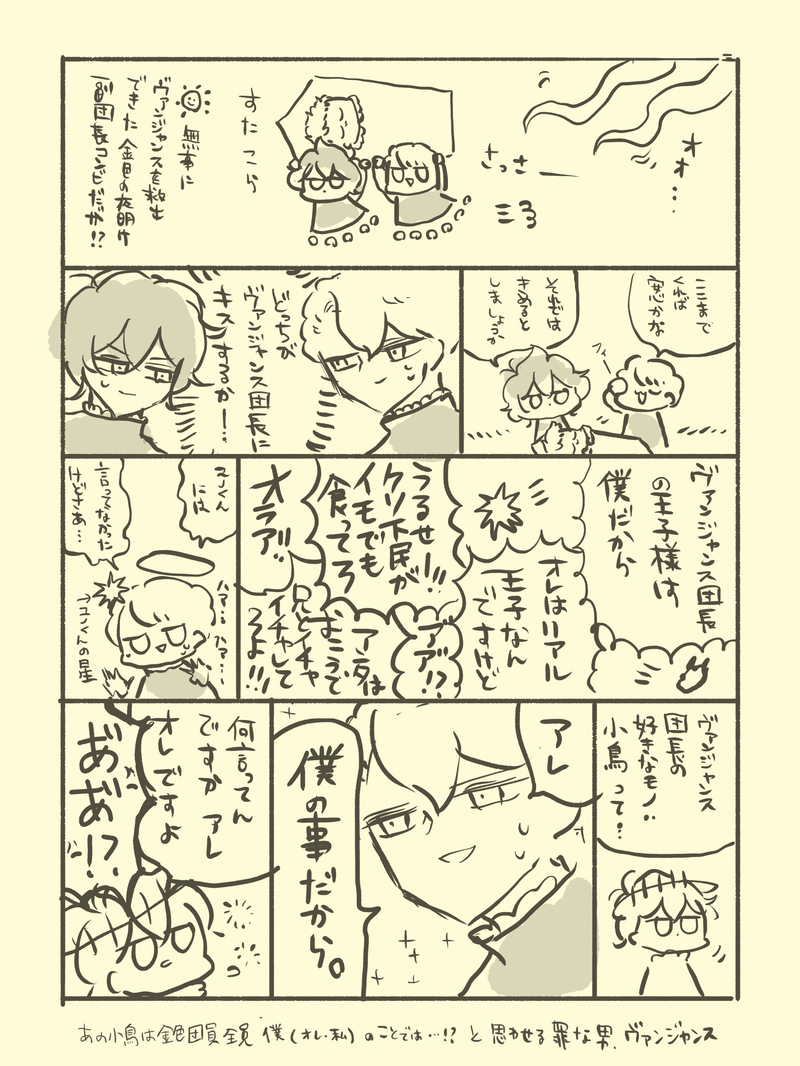 オオ…
さっさー
すたこら
無事に
ヴァンジャンスを救出
できた 金色の夜明け
副団長コンビだが!?
ここまで
くれば
窓かな
それでは
きめると
しましょうか
どっちが
ヴァンジャンス団長に
キスするか…
ヴァンジャンス団長
の王子様は
僕だから
オレはリアル
王子なん
ですけど
アア!?
うるせー!!!
クソ下民が
イモでも
食ってろ
アンタは
おこうで
兄とイチャ
イチャして
ろよ!!!
オラァッ
ユノくん
には
言ってなかった
けどさあ…
ハァ…ハァ…
→ユノくんの星
ヴァンジャンス
団長の
好きなモノ:
小鳥って…
アレ
僕の事だから。
何言ってん
ですか アレ
オレですよ
あ゛あ゛!?
あの小鳥は金色団員全員 僕(オレ・私)のことでは…!? と 思わせる罪な男、ヴァンジャンス